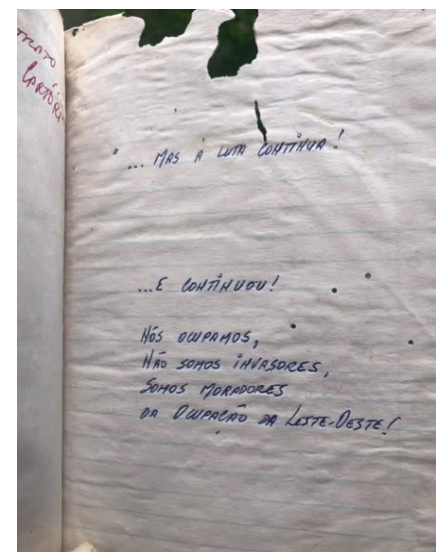 TRATO
CARTÓRI
... MAS A LUTA CONTINUA!
...E CONTINUOU!
NÓS OCUPAMOS,
NÃO SOMOS INVASORES,
SOMOS MORADORES
DA OCUPAÇÃO DA LESTE-OESTE!